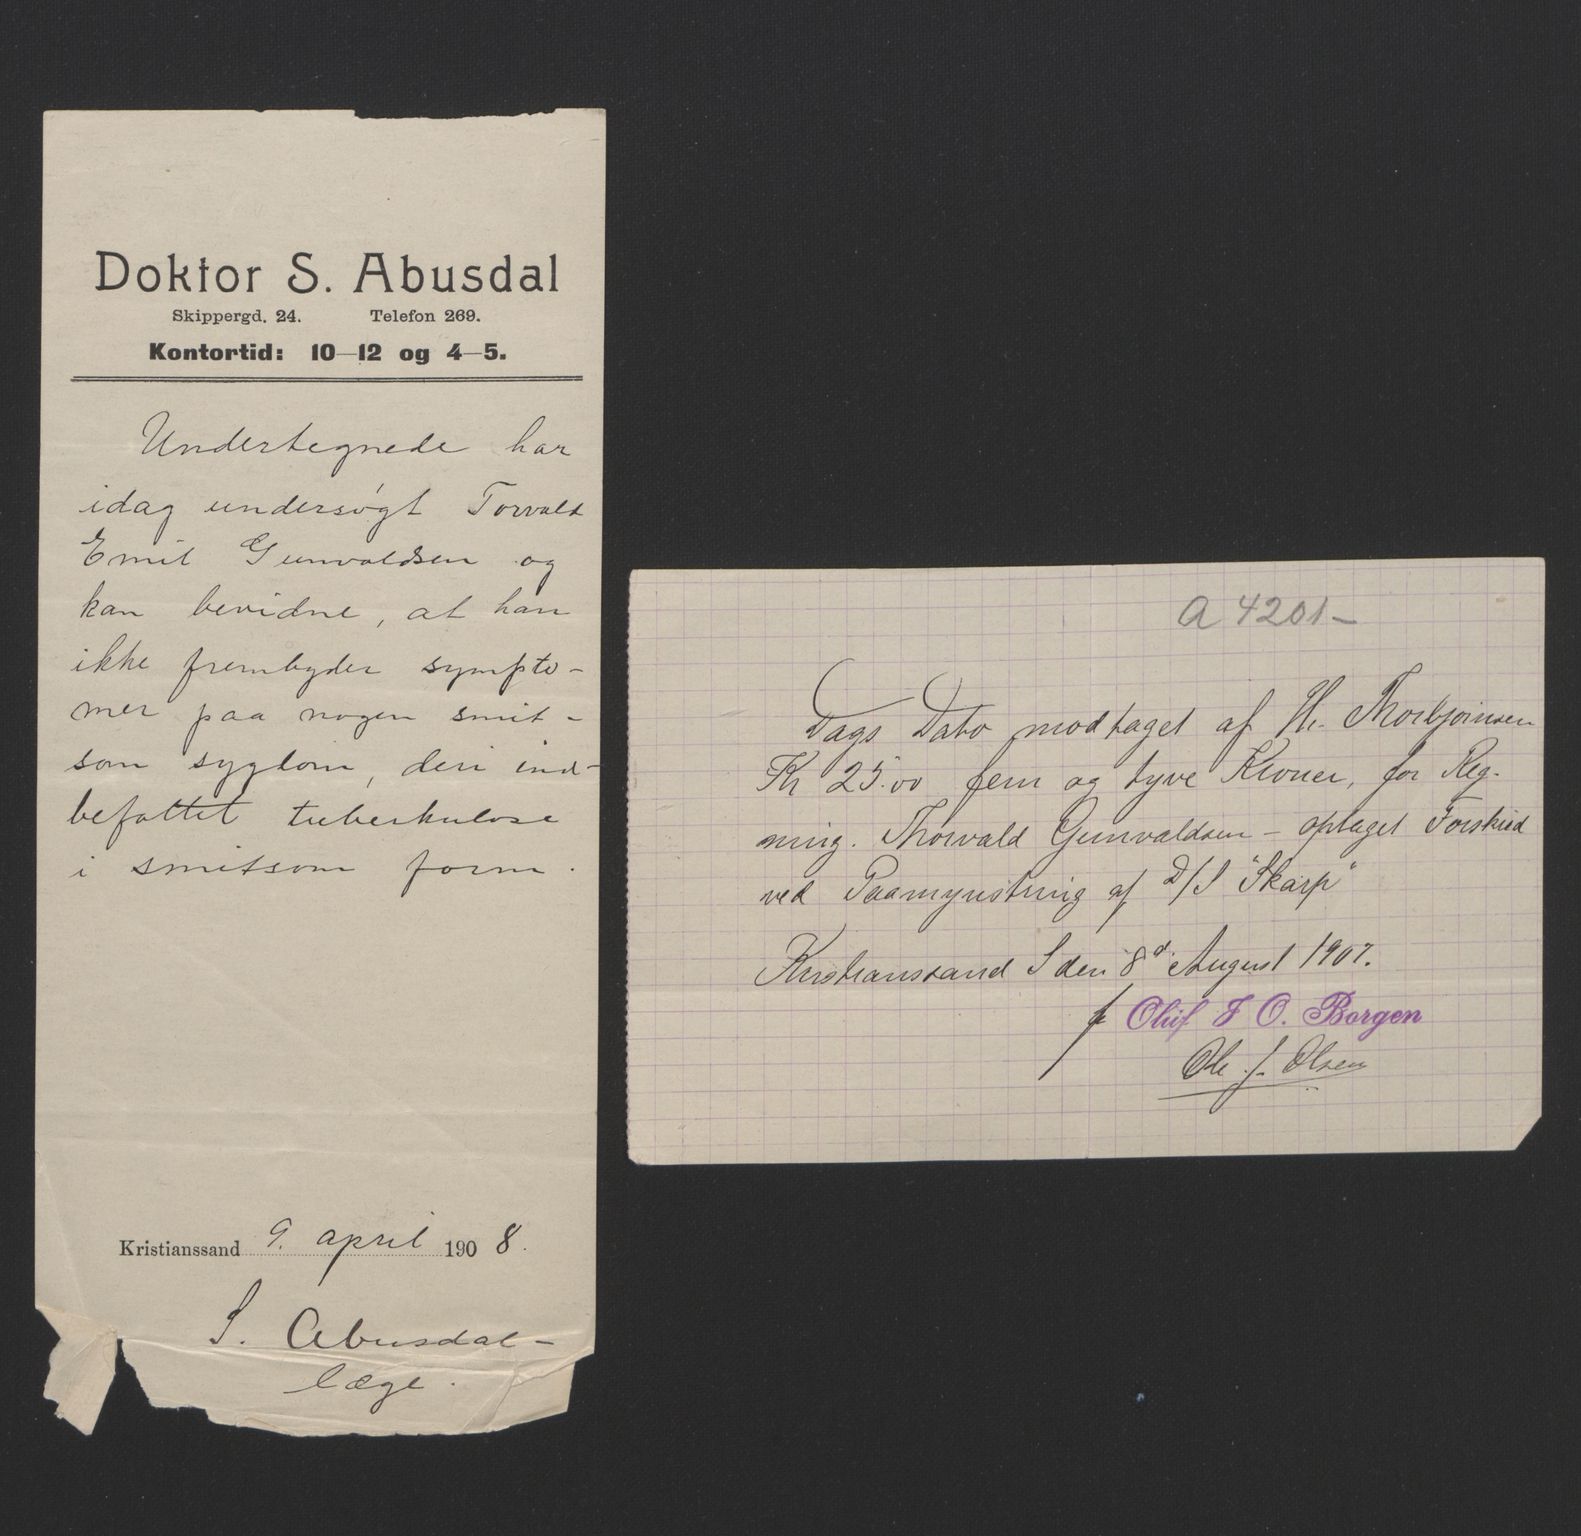 Doktor S. Abusdal
Skippergd. 24. Telefon 269.
Kontortid: 10–12 og 4–5.
Undertegnede har
idag undersøgt Torvald
Emil Gunvaldsen og
kan bevidne, at han
ikke frembyder sympto-
mer paa nogen smit-
som sygdom, deri ind-
befattet tuberkulose
i smitsom form.
Kristianssand 9. april 1908.
S. Abusdal-
læge.
A 4201-
Dags Dato modtaget af Hr. Thorbjørnsen
Kr 25.00 fem og tyve Kroner, for Reg-
ning. Thorvald Gunvaldsen - optaget Forskud
ved Paamynstring af D/S "Skarp"
Kristianssand S den 8d August 1907.
Oluf F O. Borgen
Ole J. Olsen